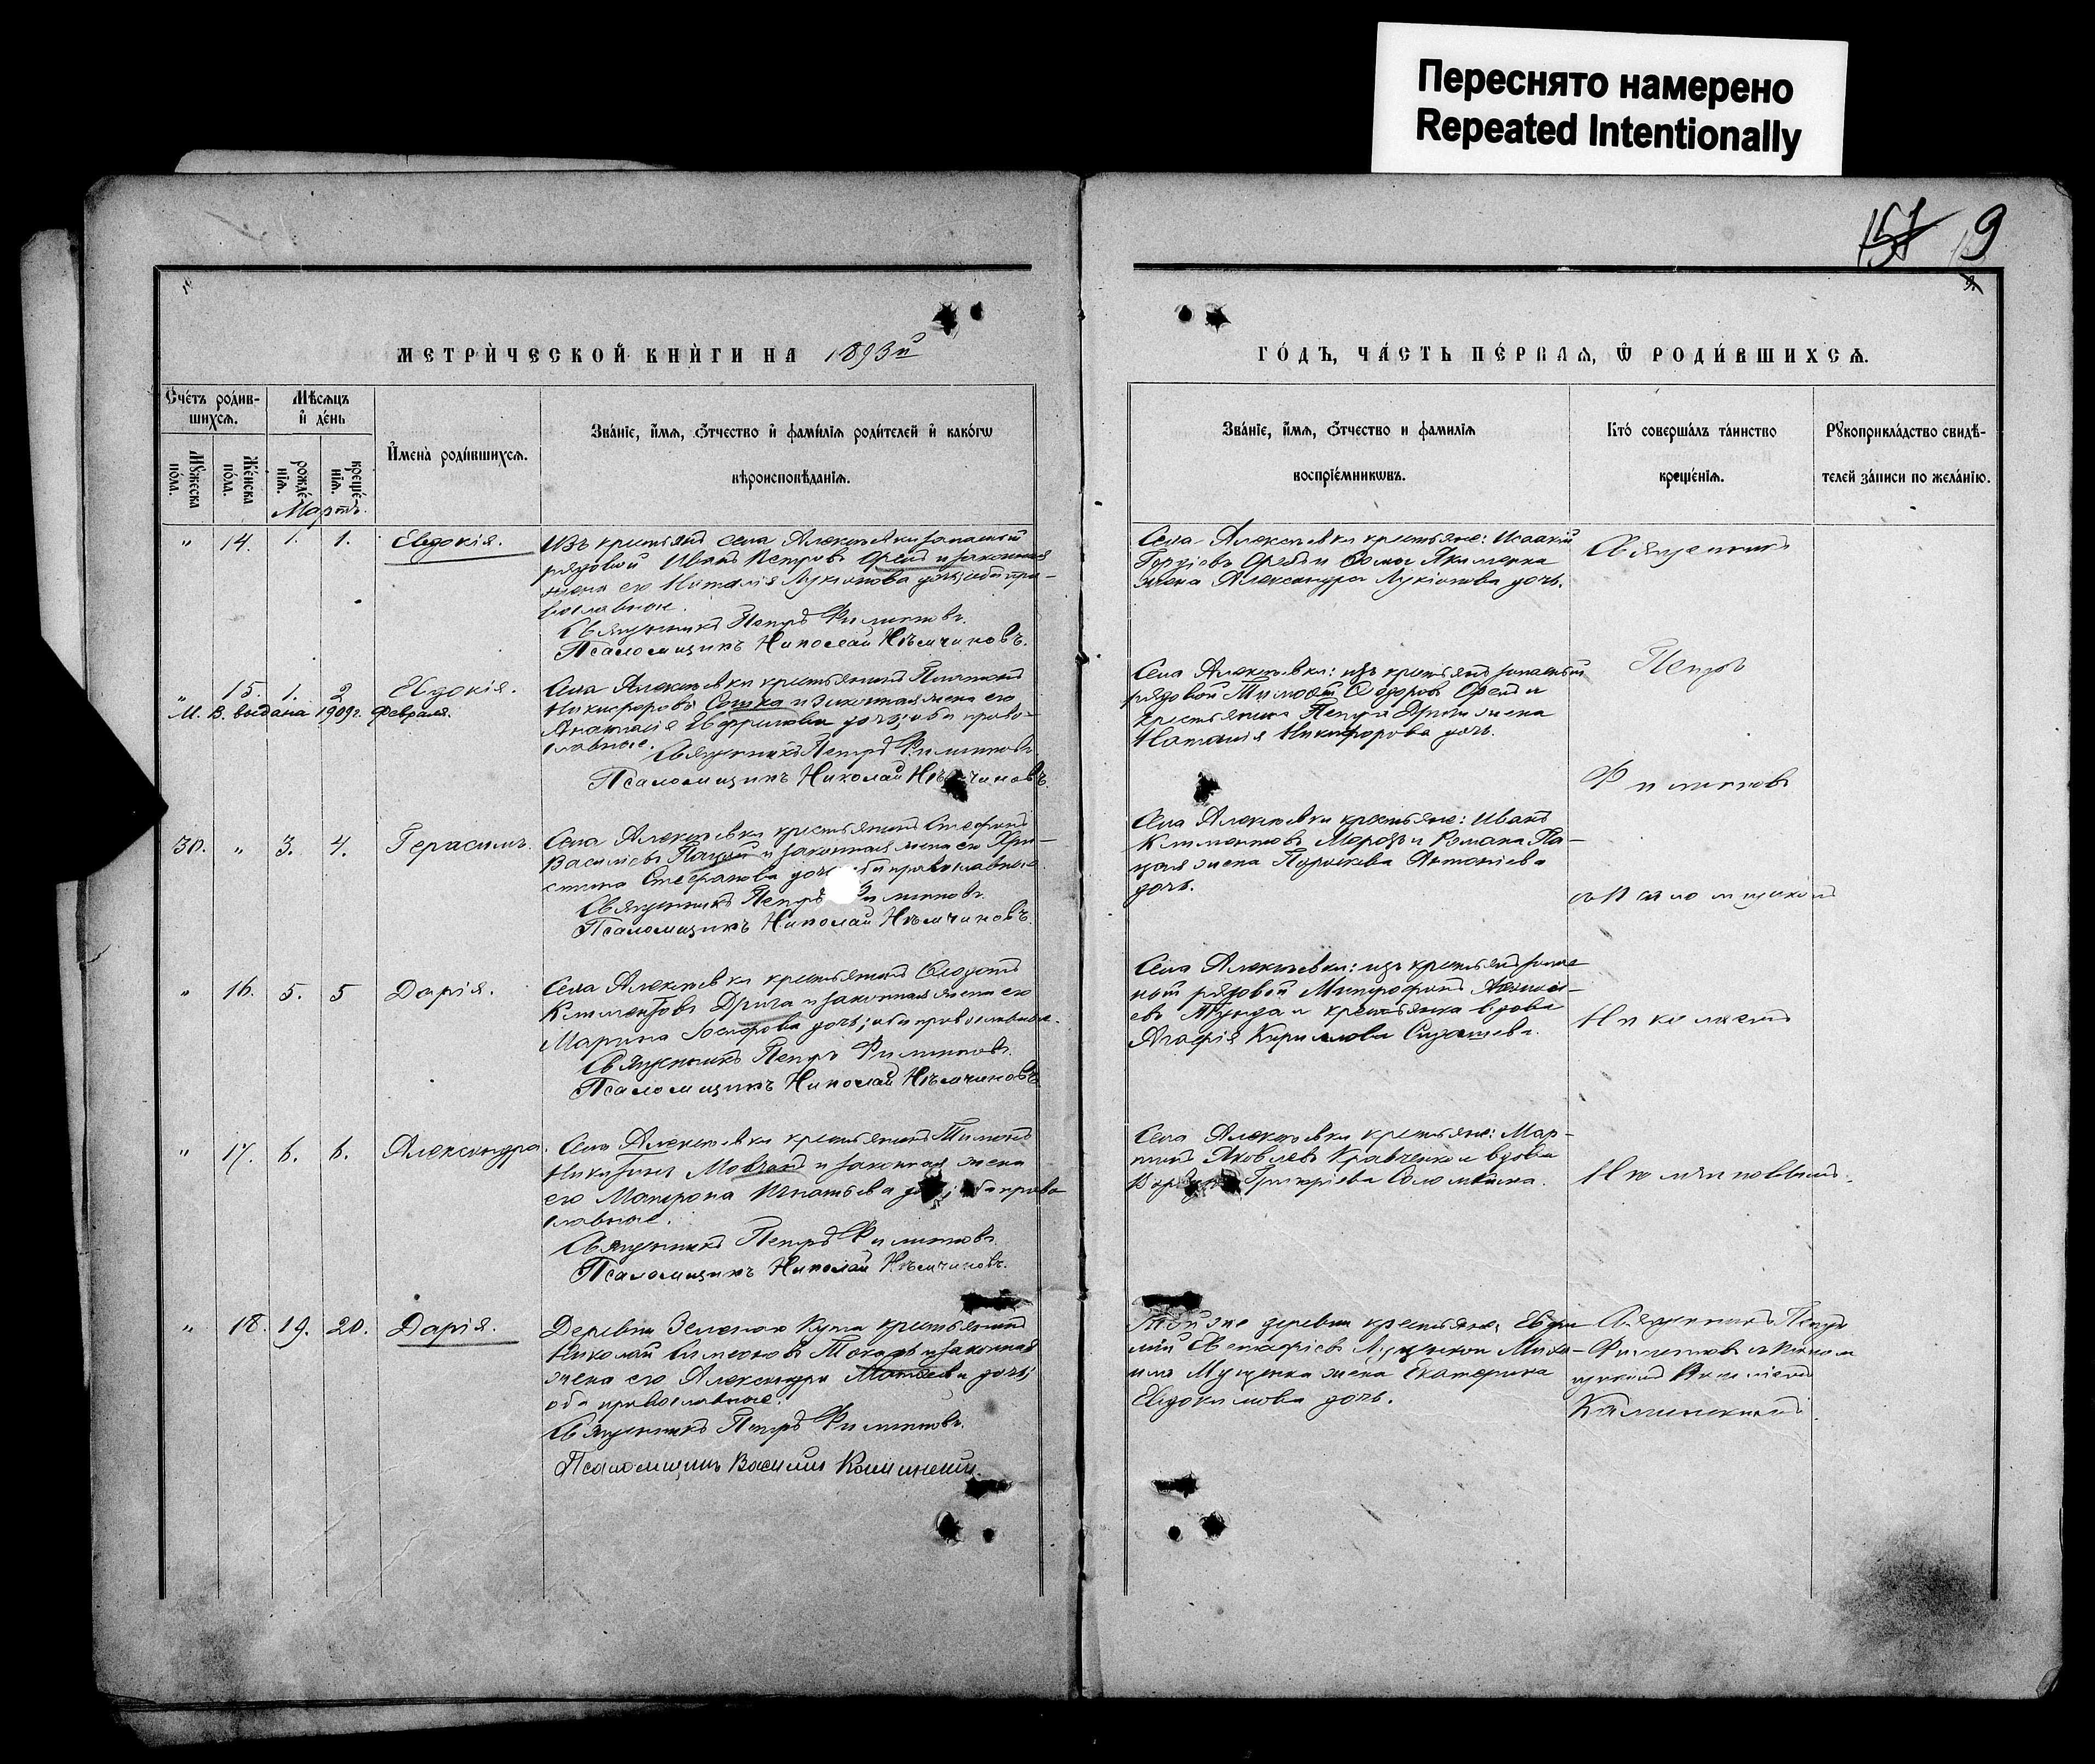 Переснято намерено
Repeated Intentionally
151 9
МЕТРИ́ЧЕСКОЙ КНИ́ГИ НА 1893й
ГО́ДЪ, ЧА́СТЬ ПЕ́РВАЯ, Ѿ РОДИ́ВШИХСѦ.
Сче́тъ роди́в-
шихсѧ.
Мꙋ́жеска по́ла.
Же́нска по́ла.
Мѣ́сѧцъ
и҆ де́нь
рожде́-
нїѧ.
креще́-
нїѧ.
Мартъ.
И҆мена̀ роди́вшихсѧ.
Зва́нїе, и҆́мѧ, ѻ҆́тчество и҆ фами́лїѧ роди́телей и҆ како́гѡ
вѣроисповѣ́данїѧ.
Зва́нїе, и҆́мѧ, ѻ҆́тчество и фамилїѧ
воспрїе́мникѡвъ.
Кто̀ соверша́лъ та́инство
креще́нїѧ.
Рꙋкоприкла́дство свидѣ́-
телей за́писи по жела́нїю.
" 14. 1. 1. Евдокія.
Изъ крестьянъ села Алексѣевки запасный
рядовой Иванъ Петровъ Орелъ и законная
жена его Наталія Лукіанова дочь; оба пра-
вославные.
Священникъ Петръ Филипповъ.
Псаломщикъ Николай Нѣмчиновъ.
Села Алексѣевки крестьяне: Исаакій
Орелъ и Якименка
жена Александра Лукіанова дочь.
Священникъ
" 15. 1. 2 Евдокія.
М. В. выдана 1909г. Февраля.
Села Алексѣевки крестьянинъ
Никифоровъ Сошка и законная жена его
Анастасія дочь; оба право-
славные.
Священникъ Петръ Филипповъ
Псаломщикъ Николай Нѣмчиновъ.
Села Алексѣевки: изъ крестьянъ запасный
рядовой Тимофей Ѳедоровъ Орелъ и
крестьянина Петра жена
Наталія Никифорова дочь.
Петръ
Филипповъ
30. " 3. 4. Герасимъ.
Села Алексѣевки крестьянинъ Стефанъ
Васильевъ и законная жена его Хри-
стина Стефанова дочь; оба православные
Священникъ Петръ Филипповъ.
Псаломщикъ Николай Нѣмчиновъ.
Села Алексѣевки крестьяне: Иванъ
Климентовъ Морозъ и Романа Па-
жена Параскева Антоніева
дочь.
съ псаломщикомъ
" 16. 5. 5 Дарія.
Села Алексѣевки крестьянинъ Ѳеодотъ
Климентовъ и законная жена его
Марина Іосифова дочь; оба православные.
Священникъ Петръ Филипповъ.
Псаломщикъ Николай Нѣмчиновъ
Села Алексѣевки: изъ крестьянъ запас-
ный рядовой Митрофанъ
евъ и крестьянка вдова
Агафія Кириллова
Николаемъ
" 17. 6. 6. Александра.
Села Алексѣевки крестьянинъ
Никитинъ Мовчанъ и законная жена
его Матрона Игнатьева дочь; оба право-
славные.
Священникъ Петръ Филипповъ.
Псаломщикъ Николай Нѣмчиновъ.
Села Алексѣевки крестьяне: Мар-
тинъ Яковлевъ Кравченко и вдова
Варвара Григоріева
Нѣмчиновымъ.
" 18. 19. 20. Дарія.
Деревни Зеленаго Кута крестьянинъ
Николай Симеоновъ Токарь и законная
жена его Александра Матѳеева дочь;
оба православные.
Священникъ Петръ Филипповъ.
Псаломщикъ Василій Калинскій.
Той же деревни крестьяне: Евфи-
мій Евстафіевъ и Миха-
ила жена Екатерина
Евдокимова дочь.
Священникъ Петръ
Филипповъ съ псалом-
щикомъ Василіемъ
Калинскимъ.